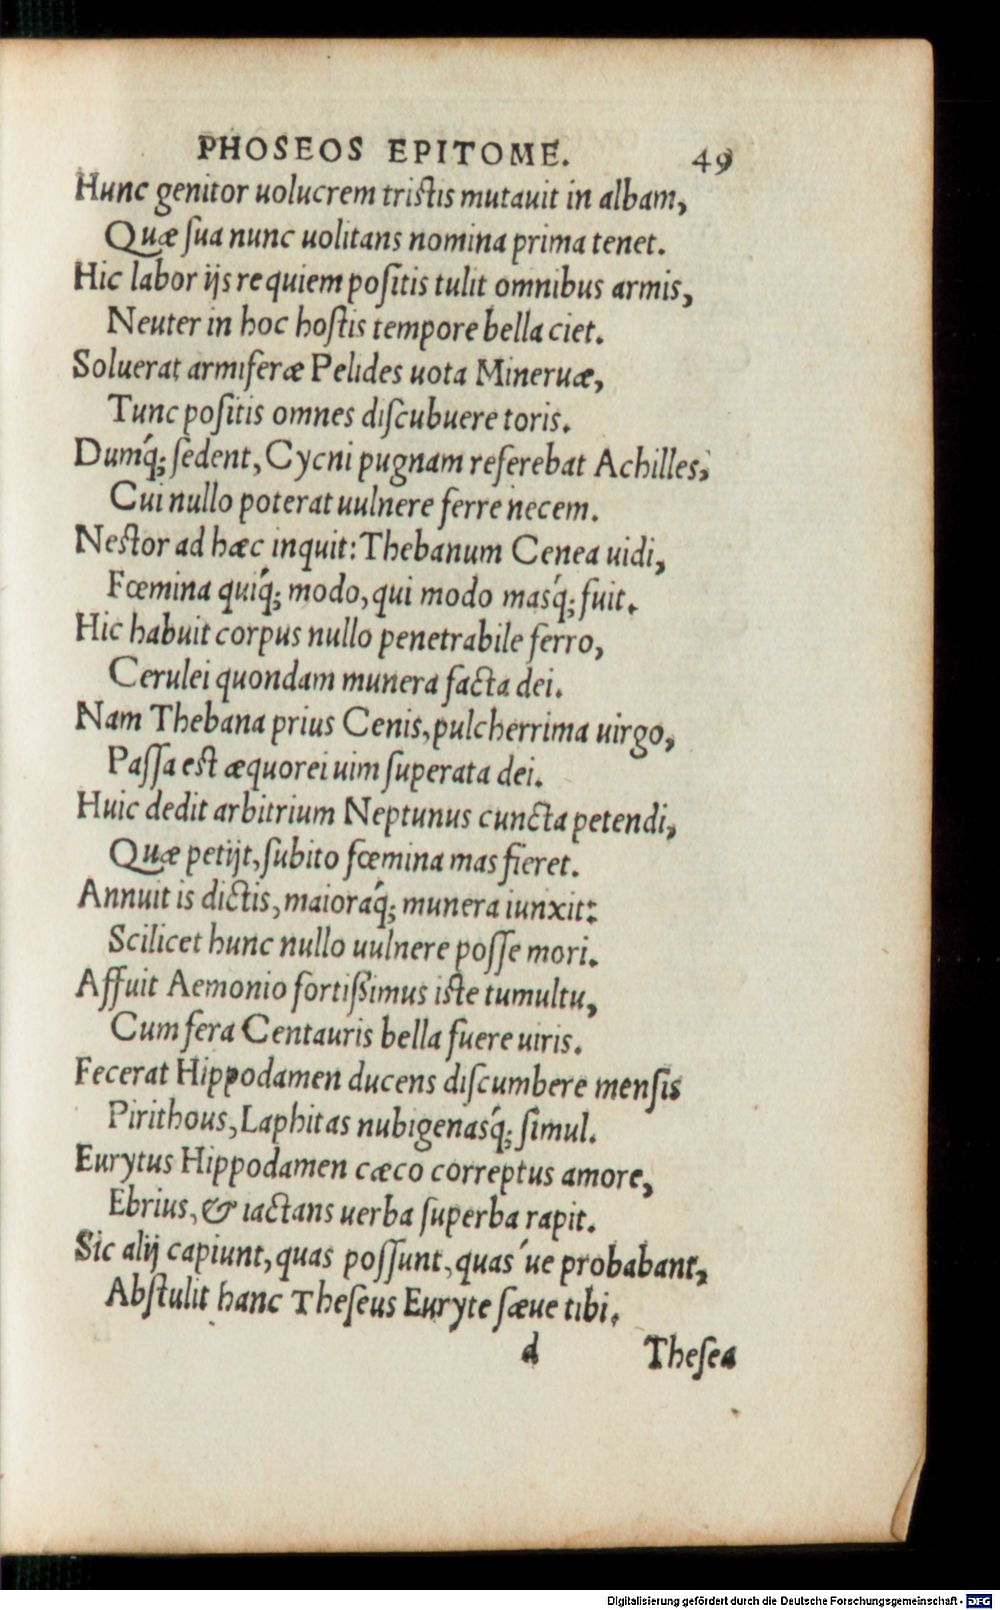 PHOSEOS EPITOME. 49
Hunc genitor uolucrem tristis mutauit in albam,
Quæ ſua nunc uolitans nomina prima tenet.
Hic labor ijs requiem poſitis tulit omnibus armis,
Neuter in hoc hoſtis tempore bella ciet.
Soluerat armiferæ Pelides uota Mineruæ,
Tunc poſitis omnes diſcubuere toris.
Dumq́; ſedent, Cycni pugnam referebat Achilles,
Cui nullo poterat uulnere ferre necem.
Nestor ad hæc inquit: Thebanum Cenea uidi,
Fœmina quiq́; modo, qui modo masq́; fuit.
Hic habuit corpus nullo penetrabile ferro,
Cerulei quondam munera facta dei.
Nam Thebana prius Cenis, pulcherrima uirgo,
Paſſa est æquorei uim ſuperata dei.
Huic dedit arbitrium Neptunus cuncta petendi,
Quæ petijt, ſubito fœmina mas fieret.
Annuit is dictis, maioraq́; munera iunxit:
Scilicet hunc nullo uulnere poſſe mori.
Affuit Aemonio fortißimus iste tumultu,
Cum fera Centauris bella fuere uiris.
Fecerat Hippodamen ducens diſcumbere menſis
Pirithous, Laphitas nubigenasq́; ſimul.
Eurytus Hippodamen cæco correptus amore,
Ebrius, & iactans uerba ſuperba rapit.
Sic alij capiunt, quas poſſunt, quas ́ue probabant,
Abſtulit hanc Theſeus Euryte ſæue tibi.
d Theſea
Digitalisierung gefördert durch die Deutsche Forschungsgemeinschaft - DFG